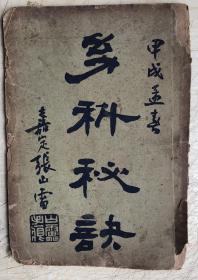 甲戌孟春
科秘訣
嘉定張山雷